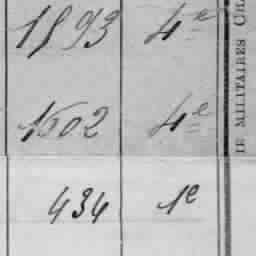 1893 4e
1502 4e
434 1e
IE MILITAIRES